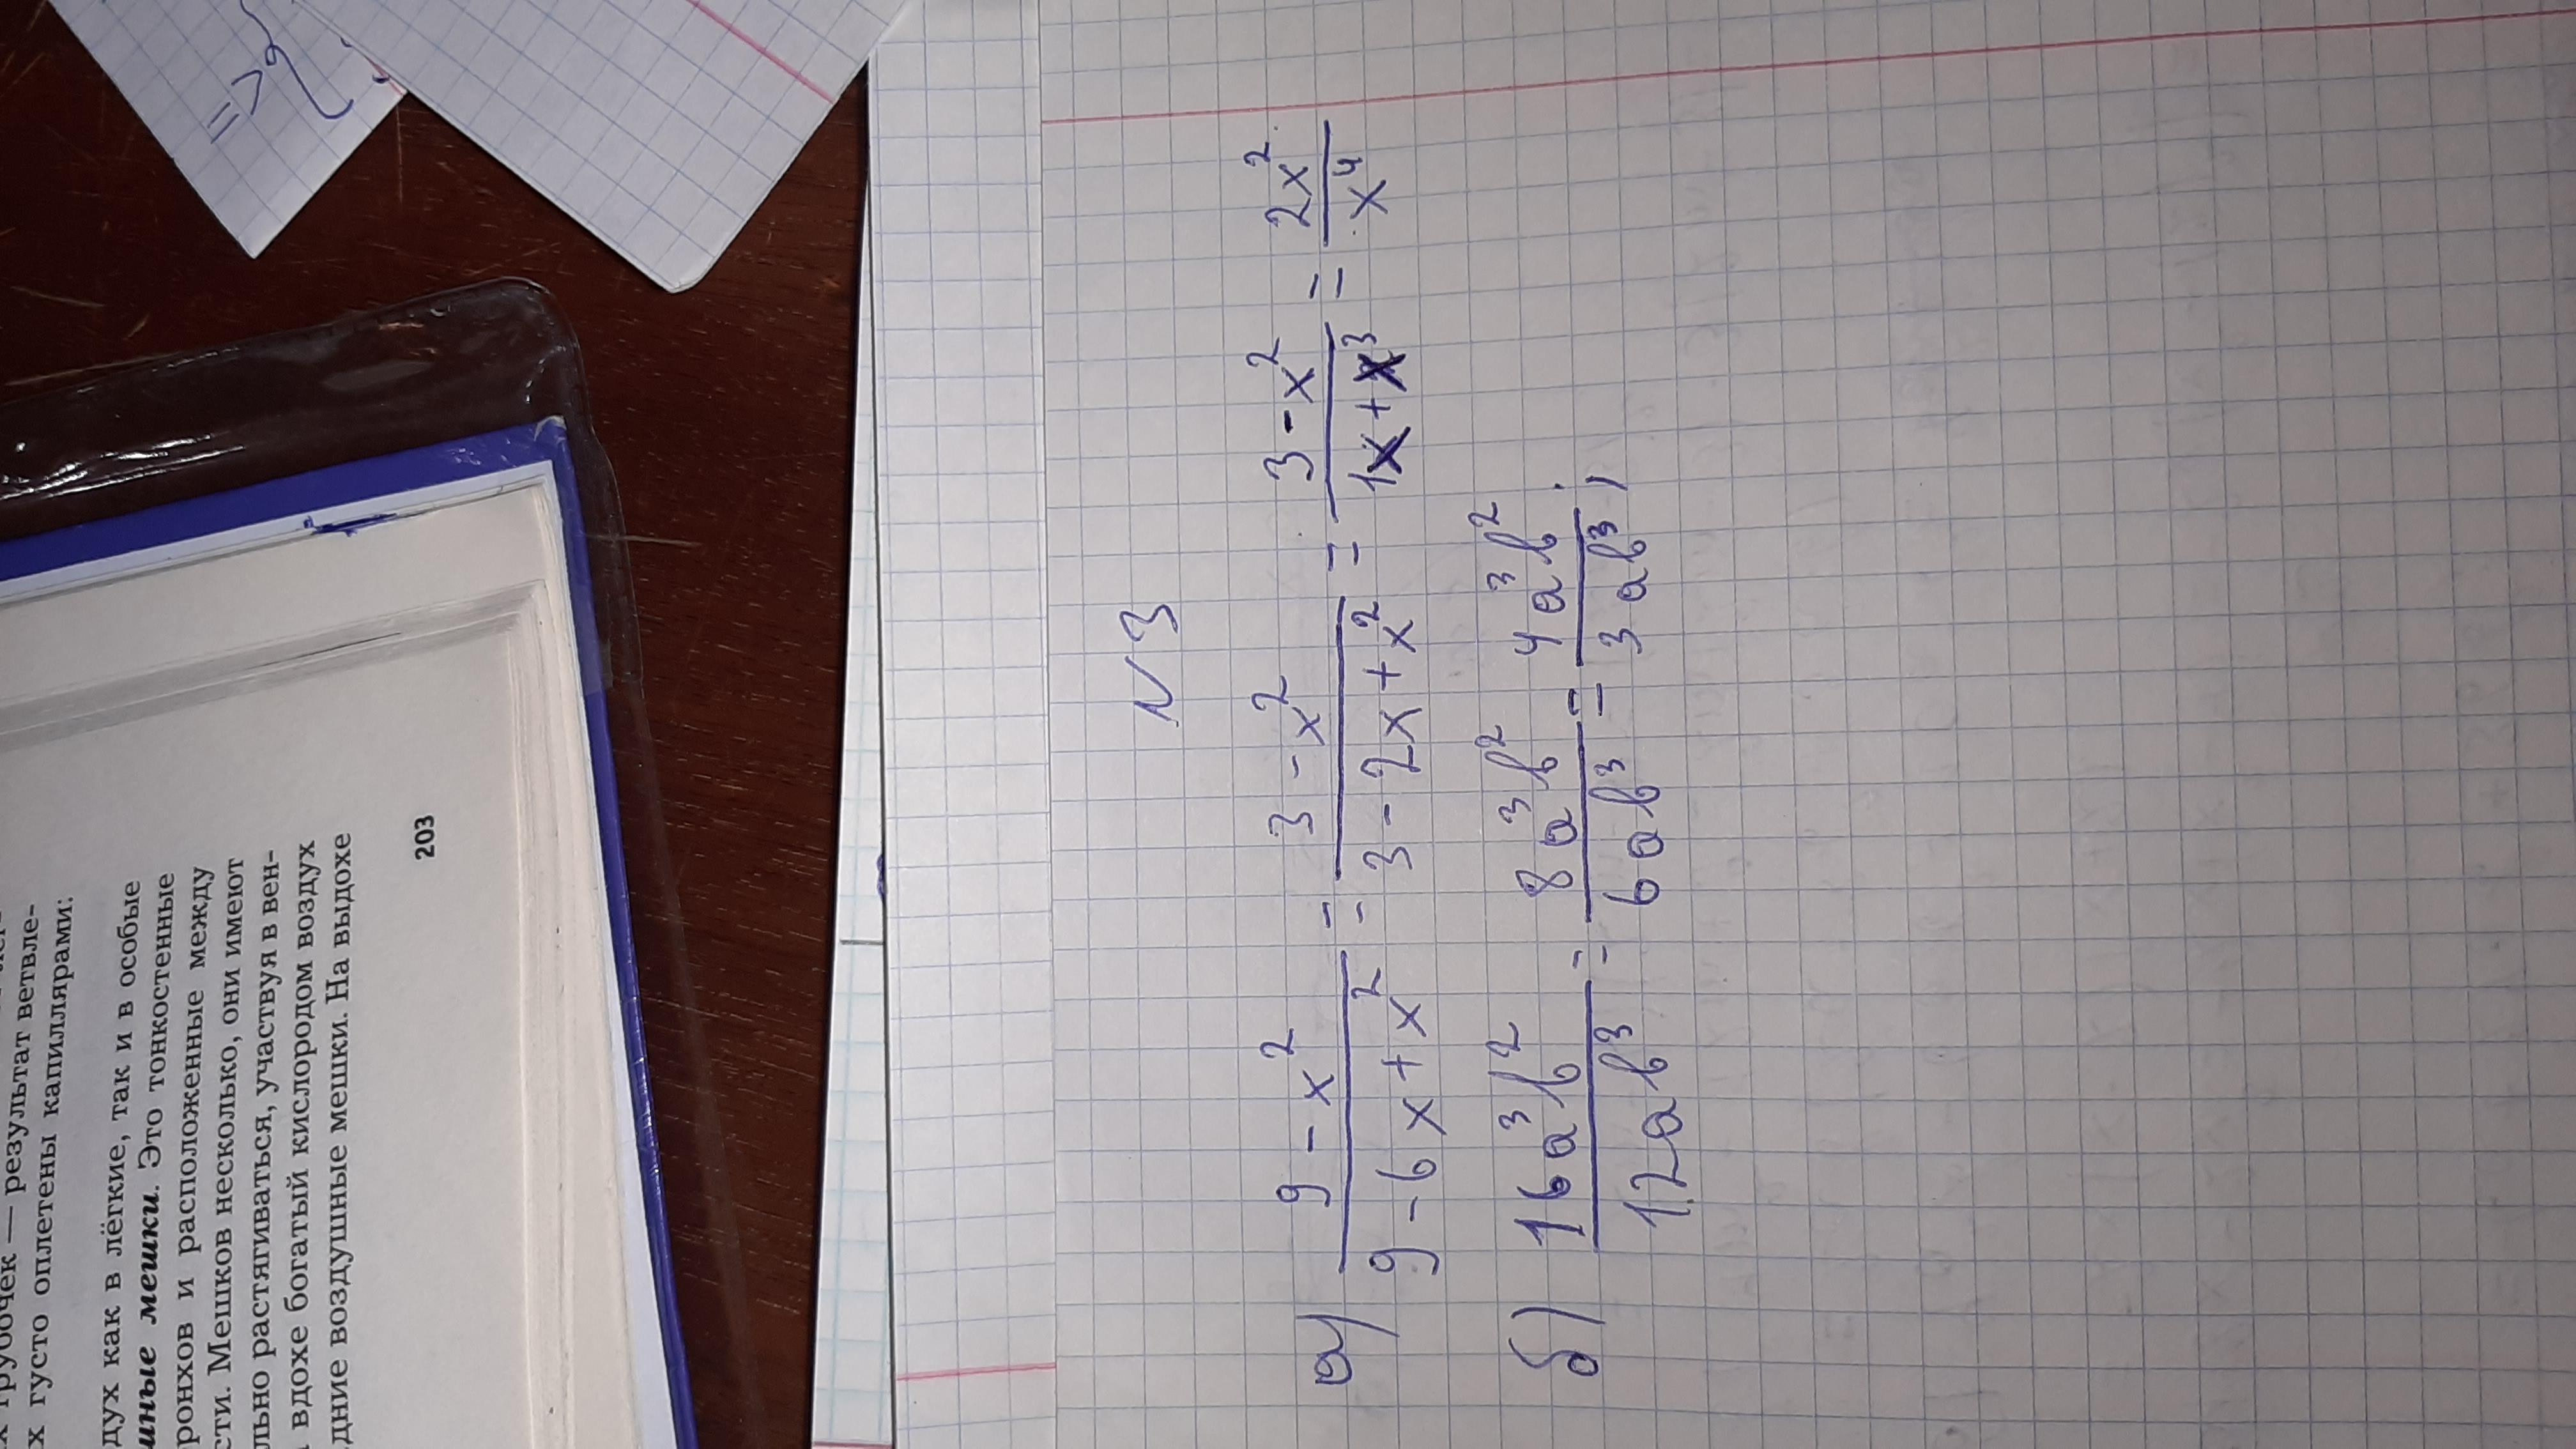 =>
результат ветвле-
густо оплетены капиллярами:
дух как в лёгкие, так и в особые
мешки. Это тонкостенные
и расположенные между
Мешков несколько, они имеют
растягиваться, участвуя в вен-
вдохе богатый кислородом воздух
воздушные мешки. На выдохе
203
N3
а) \frac{9-x^2}{9-6x+x^2} = \frac{3-x^2}{3-2x+x^2} = \frac{3-x^2}{1x+x^3} = \frac{2x^2}{x^4}
б) \frac{16a^3b^2}{12ab^3} = \frac{8a^3b^2}{6ab^3} = \frac{4a^3b^2}{3ab^3};